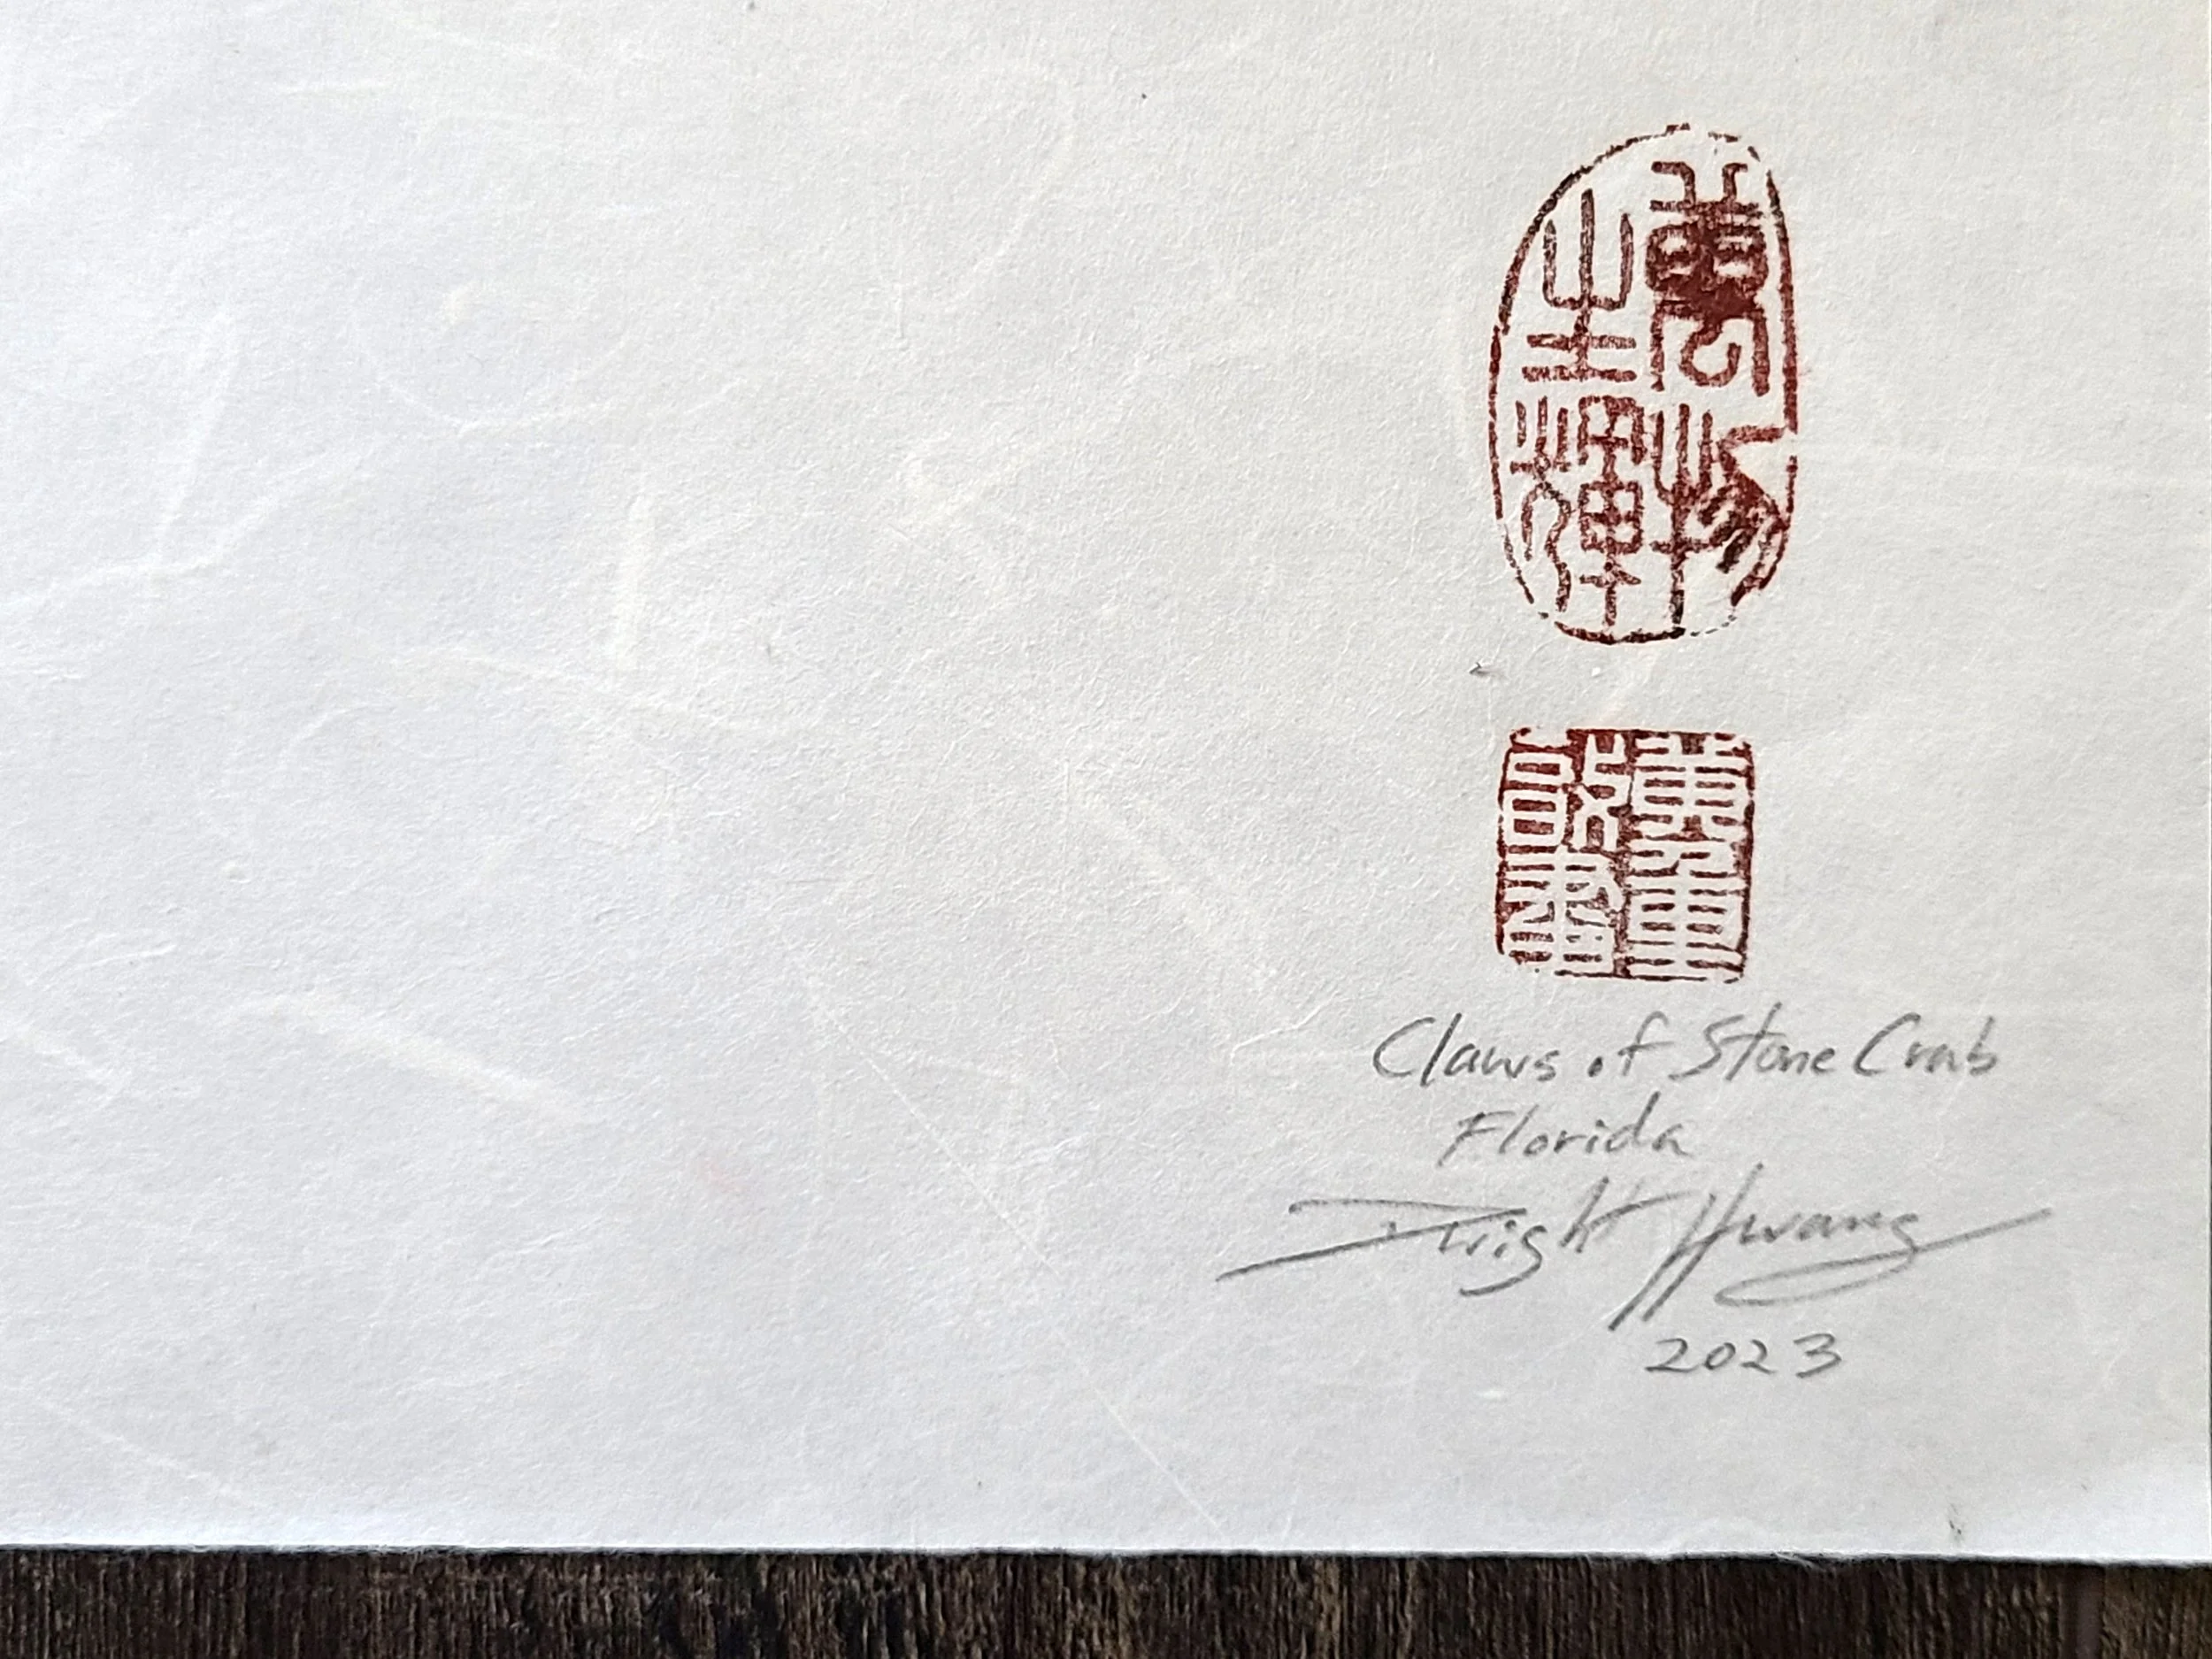 萬物
生輝
Claws of Stone Crab
Florida
Dwight Hwang
2023